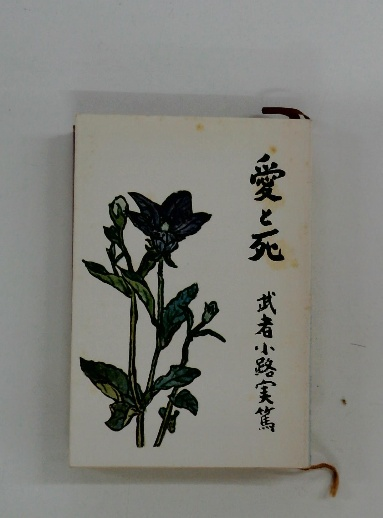 愛と死
武者小路実篤